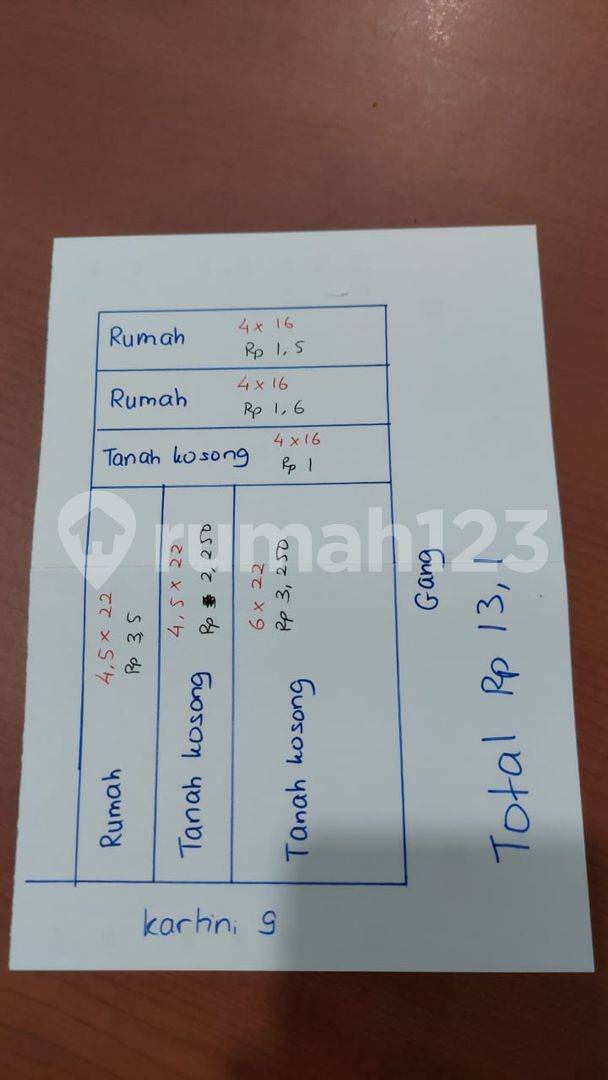 Rumah
4 x 16
Rp 1,5
Rumah
4 x 16
Rp 1,6
Tanah kosong
4 x 16
Rp 1
rumah123
Rumah
4,5 x 22
Rp 3,5
Tanah kosong
4,5 x 22
Rp 2,250
Tanah kosong
6 x 22
Rp 3,250
Gang
Total Rp 13,1
Kartini 9